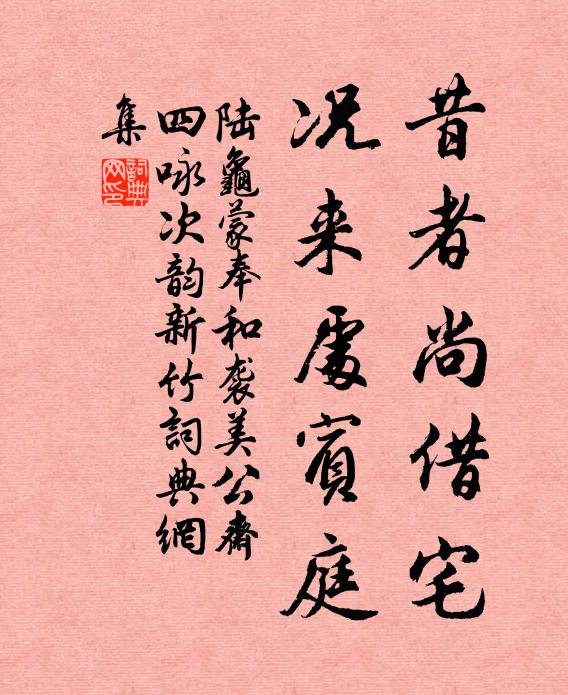 昔者尚借宅
况来处宾庭
陆龜蒙奉和袭美公齋
四咏次韵新竹詞典網
集
詞典網印